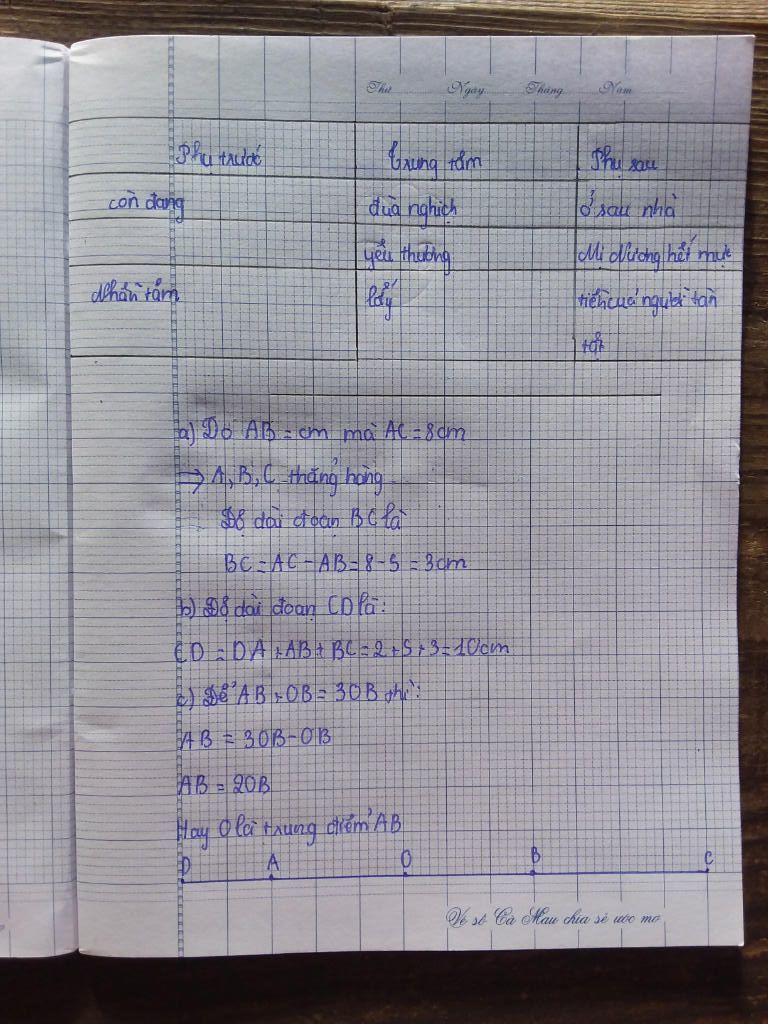 Thứ Ngày Tháng Năm
Phụ trước Trung tâm Phụ sau
còn đang đùa nghịch ở sau nhà
yêu thương Mị Nương hết mực
Nhân tâm lấy tiền của người tàn
tật
a) Do AB = cm mà AC = 8cm
⇒ A, B, C thẳng hàng
Độ dài đoạn BC là
BC = AC - AB = 8 - 5 = 3cm
b) Độ dài đoạn CD là:
CD = DA + AB + BC = 2 + 5 + 3 = 10cm
c) Để AB + OB = 3OB thì:
AB = 3OB - OB
AB = 2OB
Hay O là trung điểm AB
D A O B C
Vé số Cà Mau chia sẻ ước mơ